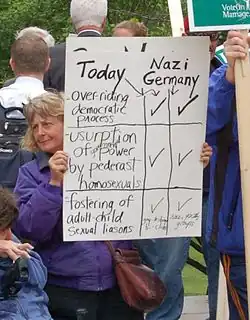 Vote on
Marriage
Today
Nazi
Germany
-overriding
democratic
process
-usurption
of power
by pederast
homosexuals
-fostering of
adult-child
sexual liasons